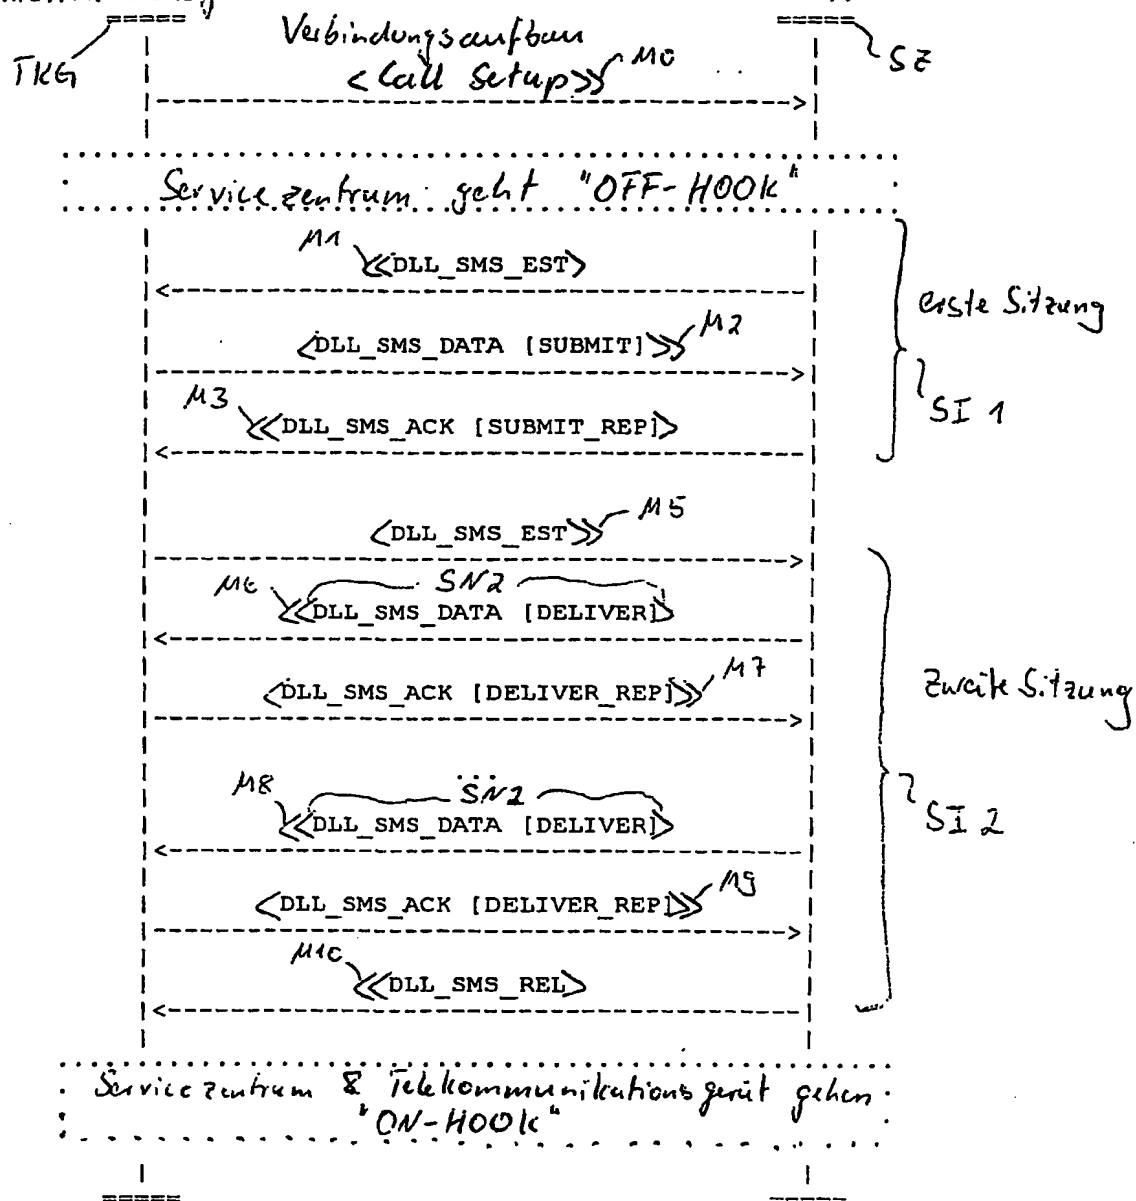 TKG
SZ
Verbindungsaufbau
<Call Setup>> M0
Servicezentrum geht "OFF-HOOK"
M1
<<DLL_SMS_EST>
erste Sitzung
<DLL_SMS_DATA [SUBMIT]>> M2
M3
<<DLL_SMS_ACK [SUBMIT_REP]>
SI 1
<DLL_SMS_EST>> M5
M6 SN2
<<DLL_SMS_DATA [DELIVER]>
<DLL_SMS_ACK [DELIVER_REP]>> M7
zweite Sitzung
M8 SN2
<<DLL_SMS_DATA [DELIVER]>
SI 2
<DLL_SMS_ACK [DELIVER_REP]>> M9
M10
<<DLL_SMS_REL>
Servicezentrum & Telekommunikationsgerät gehen
"ON-HOOK"